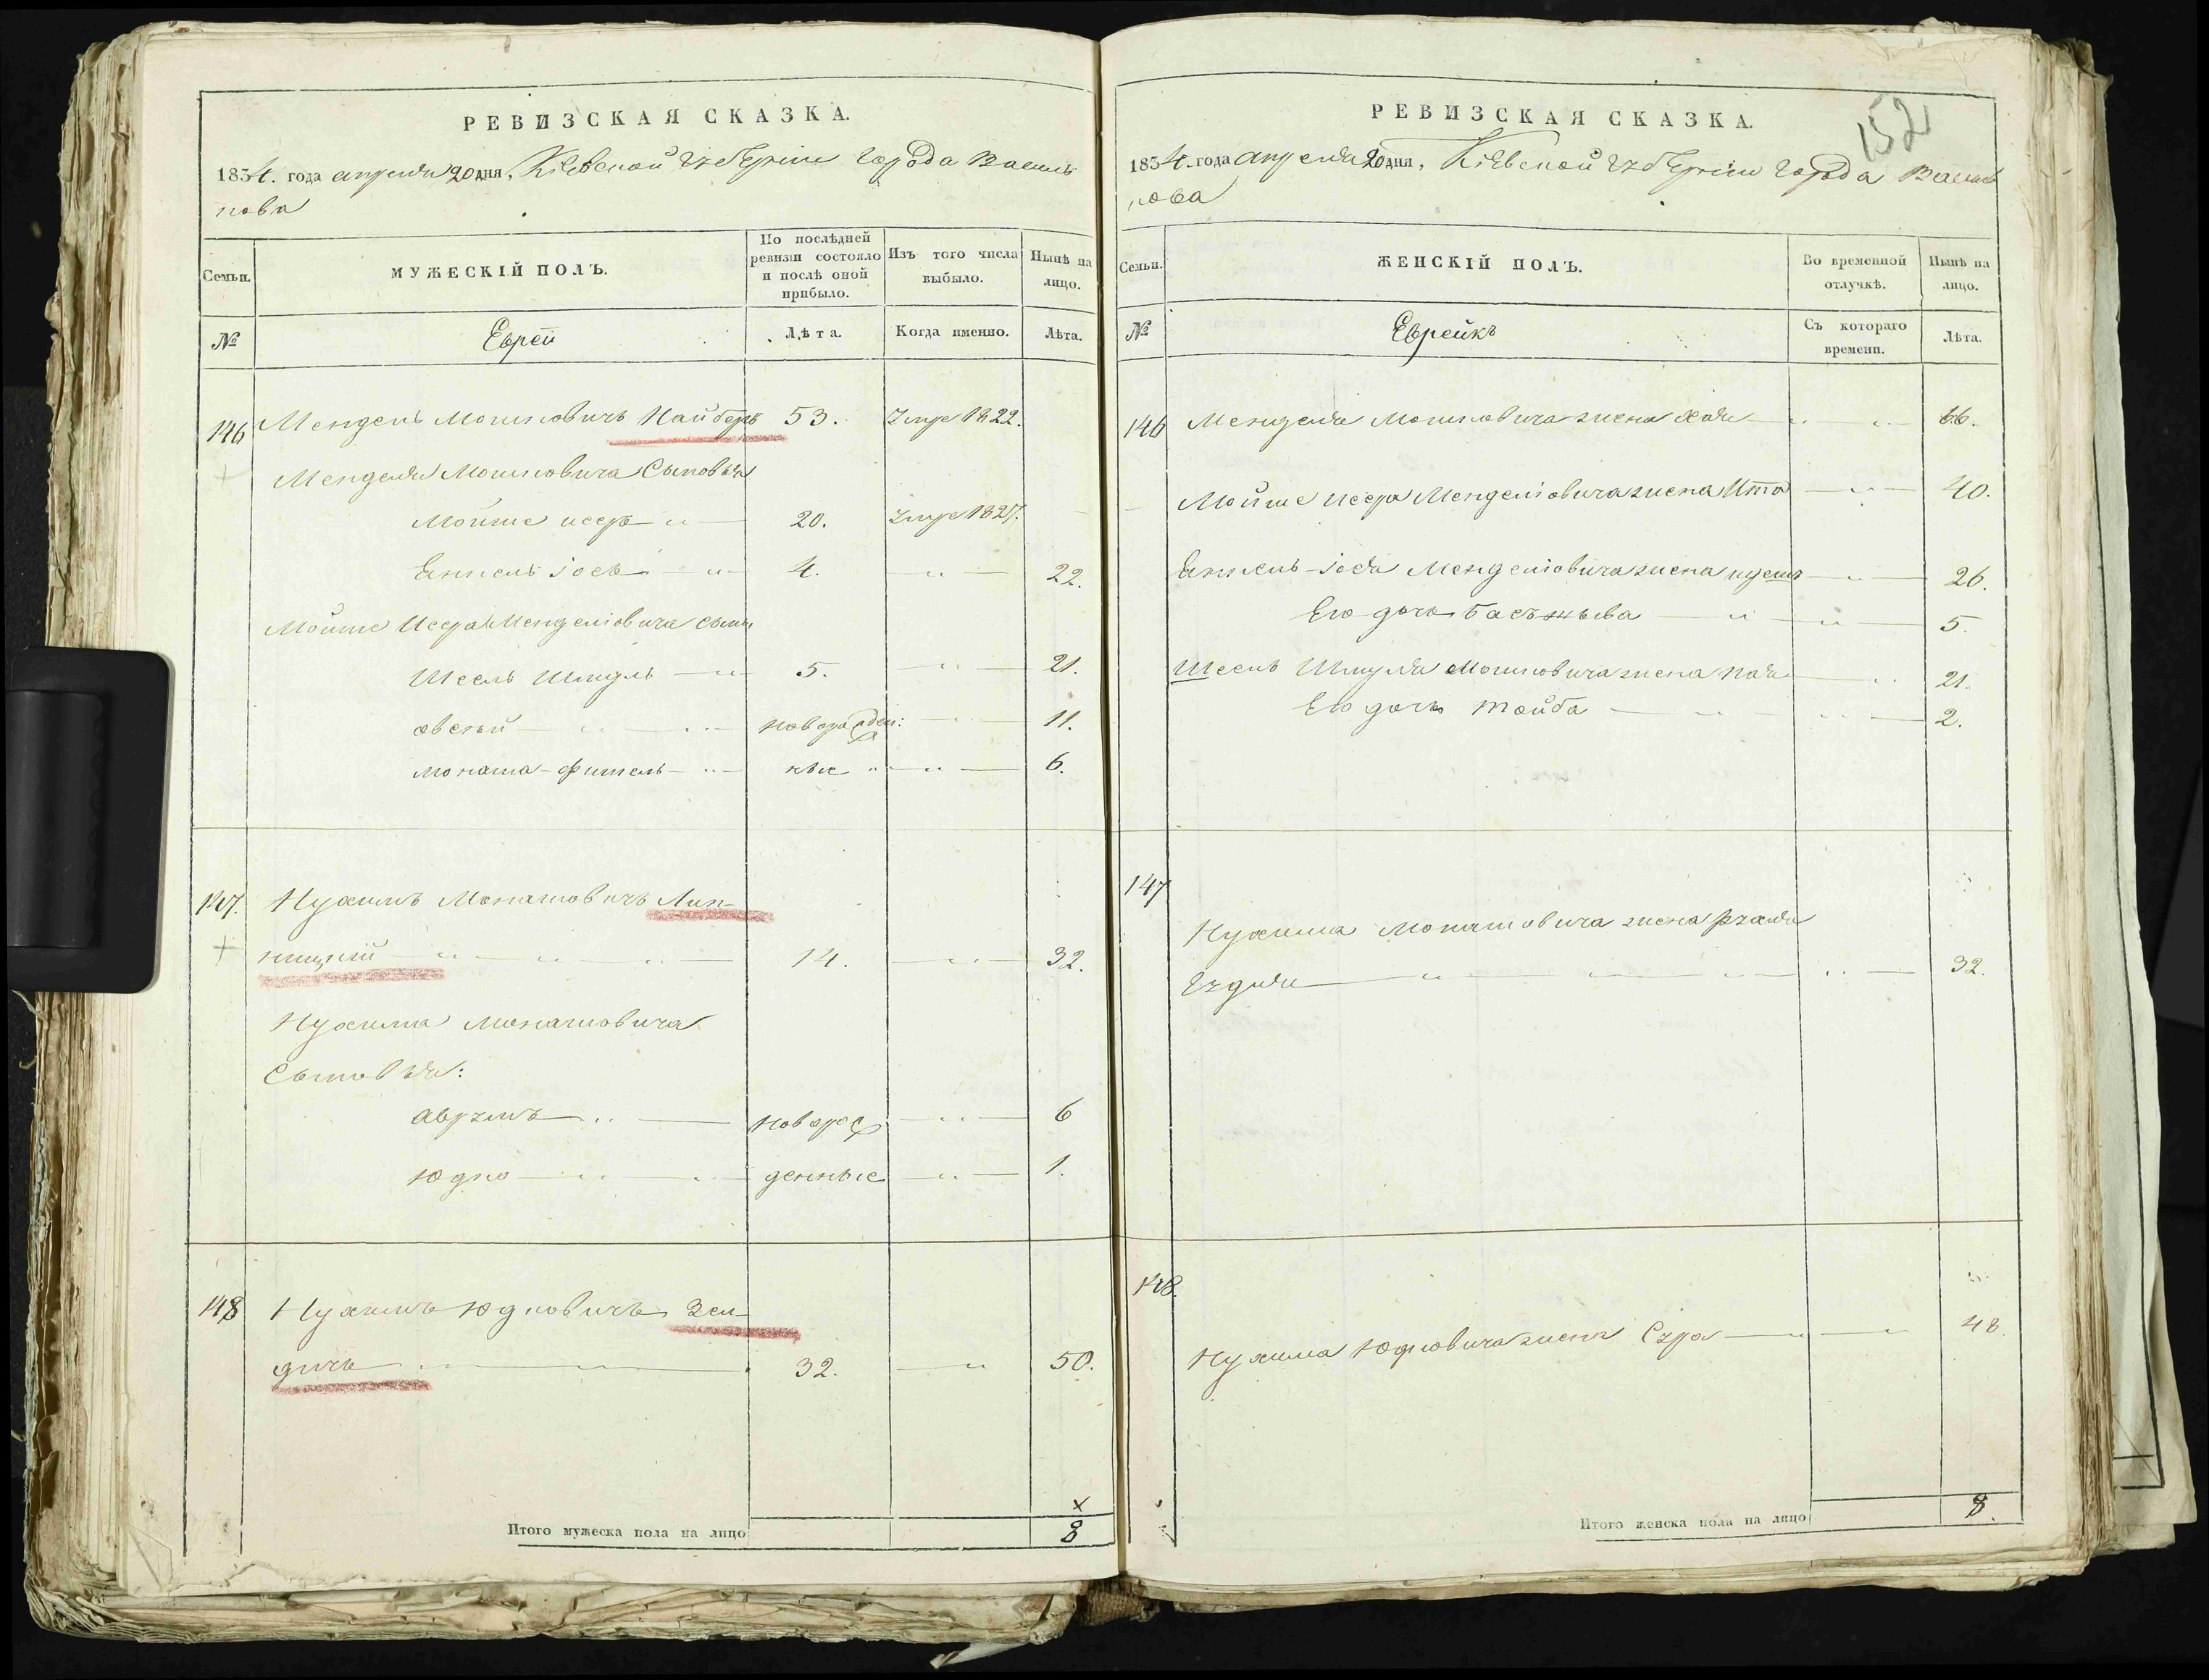 РЕВИЗСКАЯ СКАЗКА.
1834. года апреля 20 дня, Кіевской губерніи города Василь
кова
Семьи.
МУЖЕСКІЙ ПОЛЪ.
По послѣдней ревизіи состояло и послѣ оной прибыло.
Изъ того числа выбыло.
Нынѣ на лицо.
№
Еврей
Лѣта.
Когда именно.
Лѣта.
146 Мендель Мошковичъ 53. Умре 1822.
Менделя Мошковича Сыновья
Мойше исеръ 20. Умре 1827.
Янкель іось 4. 22.
Мойше Исера Менделіовича сыны
Шсель Шмуль 5. 21.
овсѣй новорожден: 11.
монаша-фишель ные 6.
147. Нухимъ Монашовичъ Лип-
ницкій 14. 32.
Нухима Монашовича
Сыновья:
аврумъ новорож 6
юдко денные 1.
148 Нухимъ юдковичъ Зел-
дичъ 32. 50.
Итого мужеска пола на лицо 8
152
РЕВИЗСКАЯ СКАЗКА.
1834. года апреля 20 дня, Кіевской губерніи города Василь
кова
Семьи.
ЖЕНСКІЙ ПОЛЪ.
Во временной отлучкѣ.
Нынѣ на лицо.
№
Еврейкъ
Съ котораго времени.
Лѣта.
146 Менделя Мошковича жена Хая 66.
Мойше исера Менделіовича жена Ита 40.
Янкель-іося Менделіовича жена 26.
Его дочь Басъ 5.
Шсель Шмуля Мошковича жена 21.
Его дочь Тойба 2.
147
Нухима Монашовича жена Рухля
Гудля 32.
148.
Нухима Юдковича жена Сура 48.
Итого женска пола на лицо 8.